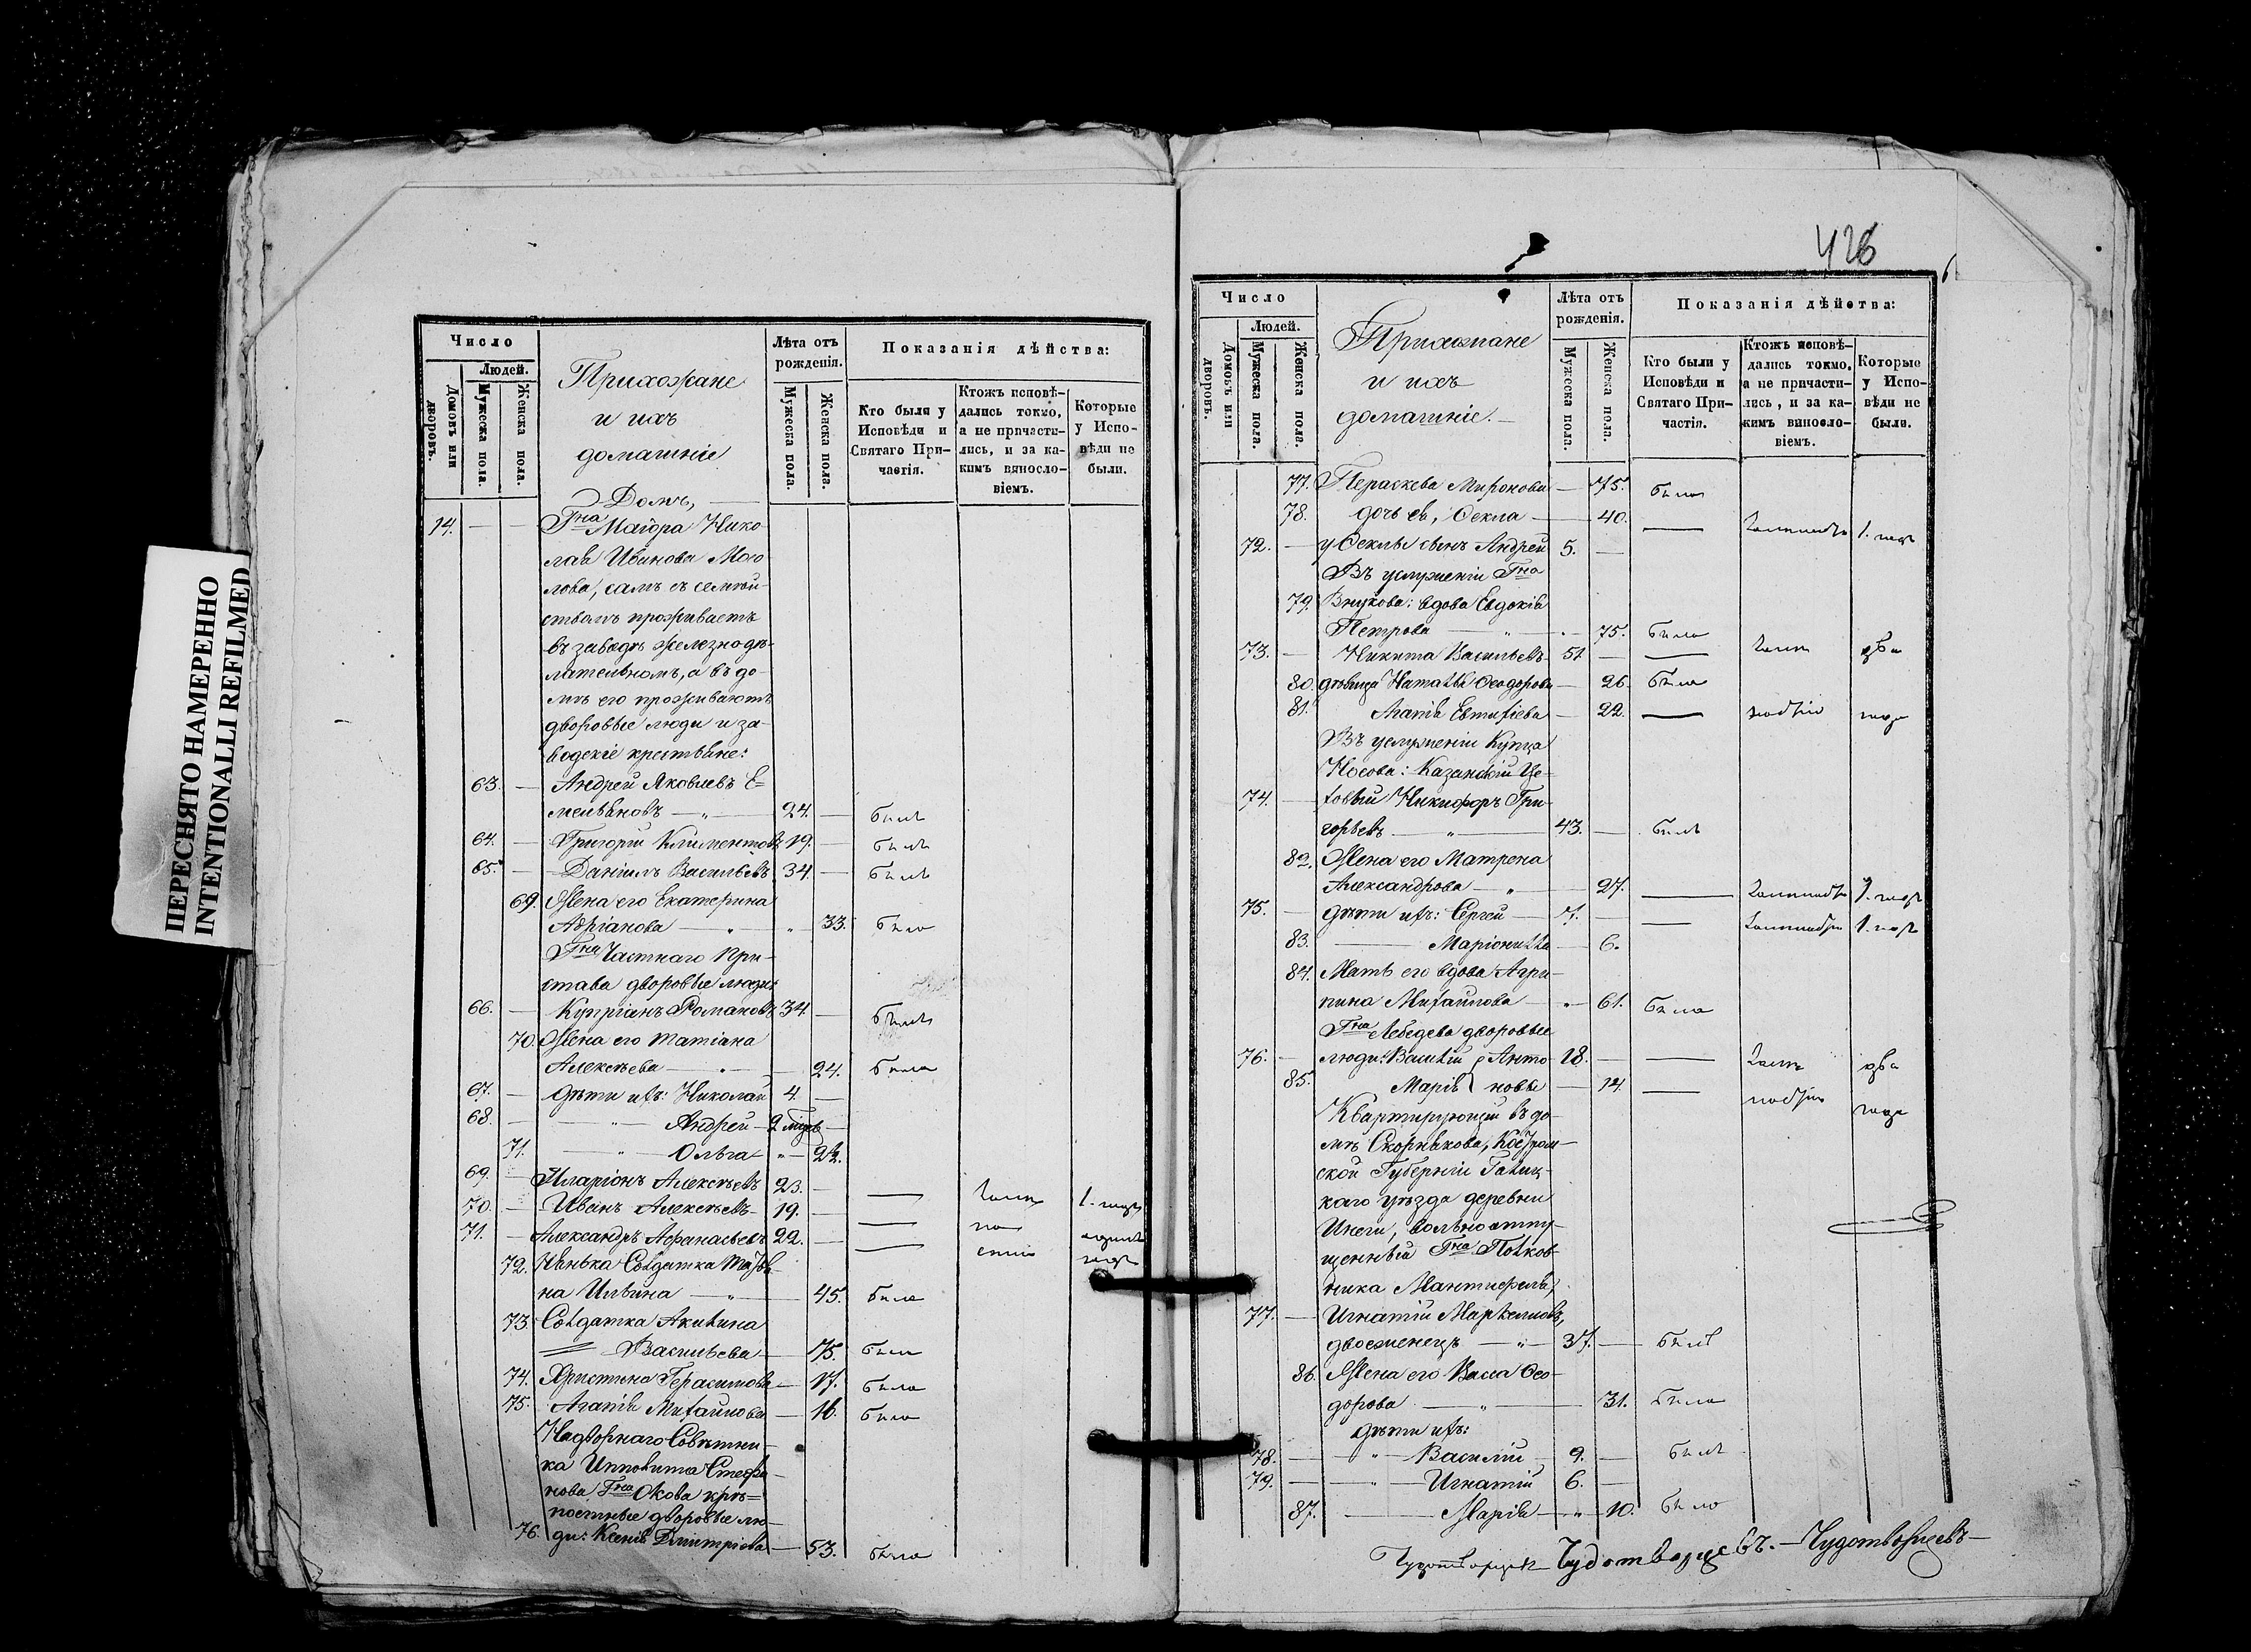 ПЕРЕСНЯТО НАМЕРЕННО
INTENTIONALLI REFILMED
Число
Людей.
Домовъ или дворовъ.
Мужеска пола.
Женска пола.
Прихожане
и ихъ
домашніе
Лѣта отъ рожденія.
Мужеска пола.
Женска пола.
Показанія дѣйства:
Кто были у Исповѣди и Святаго Причастія.
Ктожъ исповѣдались токмо, а не причастились, и за какимъ винословіемъ.
Которые у Исповѣди не были.
Домъ,
14. — — Гна Маіора Нико-
лая Иванова
лова, самъ съ семѣй-
ствомъ проживаетъ
въ заводѣ железнодѣ-
лательномъ, а въ до-
мѣ его проживаютъ
дворовые люди и за-
водскіе крестьяне:
63. — Андрей Яковлевъ Е=
мельяновъ — „ — 24. — былъ
64. — Григорій Климентовъ 19. — былъ
65. — Даніилъ Васильевъ 34. — былъ
69. Жена его Екатерина
Адріанова — „ — „ 33. была
Гна Частнаго При-
става дворовые люди:
66. — Купріанъ Романовъ 34. — былъ
70. Жена его Татіана
Алексѣева — „ — 24. была
67. — дѣти ихъ: Николай 4. —
68. — „ — Андрей — 2
71. — „ — Ольга — „ —
69. — Иларіонъ Алексѣевъ 23. — —
70. — Иванъ Алексѣевъ — 19. — —
71. — Александръ Афанасьевъ 22. — —
72. Нянька Солдатка
на Ильина — „ — 45. была
73. Солдатка Акилина
Васильева — 75. была
74. Христина Герасимова — 17. была
75. Агапія Михайлова — 16. была
Надворнаго Совѣтни-
ка Ипполита Стефа-
нова Гна Окова крѣ=
постные дворовые лю-
76. ди: Ксенія Димитріева — 53. была
426
Число
Людей.
Домовъ или дворовъ.
Мужеска пола.
Женска пола.
Прихожане
и ихъ
домашніе. —
Лѣта отъ рожденія.
Мужеска пола.
Женска пола.
Показанія дѣйства:
Кто были у Исповѣди и Святаго Причастія.
Ктожъ исповѣдались токмо, а не причастились, и за какимъ винословіемъ.
Которые у Исповѣди не были.
77. Параскева Миронова — 75. была
78. дочь ея, Ѳекла — 40. —
72. — у Ѳеклы сынъ Андрей 5. —
Въ услуженіи Гна
79. Внукова: вдова Евдокія
Петрова — „ — 75. была
73. — Никита Васильевъ 51. — — два
80. дѣвица Наталья Ѳеодорова — 26. была
81. Агапія Евтифіева — 22. — года
Въ услуженіи Купца
Носова: Казанскій Це-
74. — ховый Никифоръ Гри-
горьевъ — „ — 43. — былъ
82. Жена его Матрена
Александрова — „ — 27. —
75. — дѣти ихъ: Сергей — 7. — —
83. — Маріонилла — 6.
84. Мать его вдова Агри-
пина Михайлова — „ — 61. была
Гна Лебедева дворовые
76. — люди: Василій Анто- 18. — — два
85. Марія новы — 14. — года
Квартирующій въ до-
мѣ Скорнякова, Костром-
ской Губерніи Галиц-
каго уѣзда деревни
вольноотпу-
щенный Гна Полков-
ника
77. — Игнатій
двоеженецъ — „ — 37. — былъ
86. Жена его Васса Ѳео-
дорова — „ — 31. была
дѣти ихъ:
78. — „ — Василій 9. — былъ
79. — „ — Игнатій 6. —
87. — Марія — „ — 10. было
Чудотворцевъ. — Чудотворцевъ —